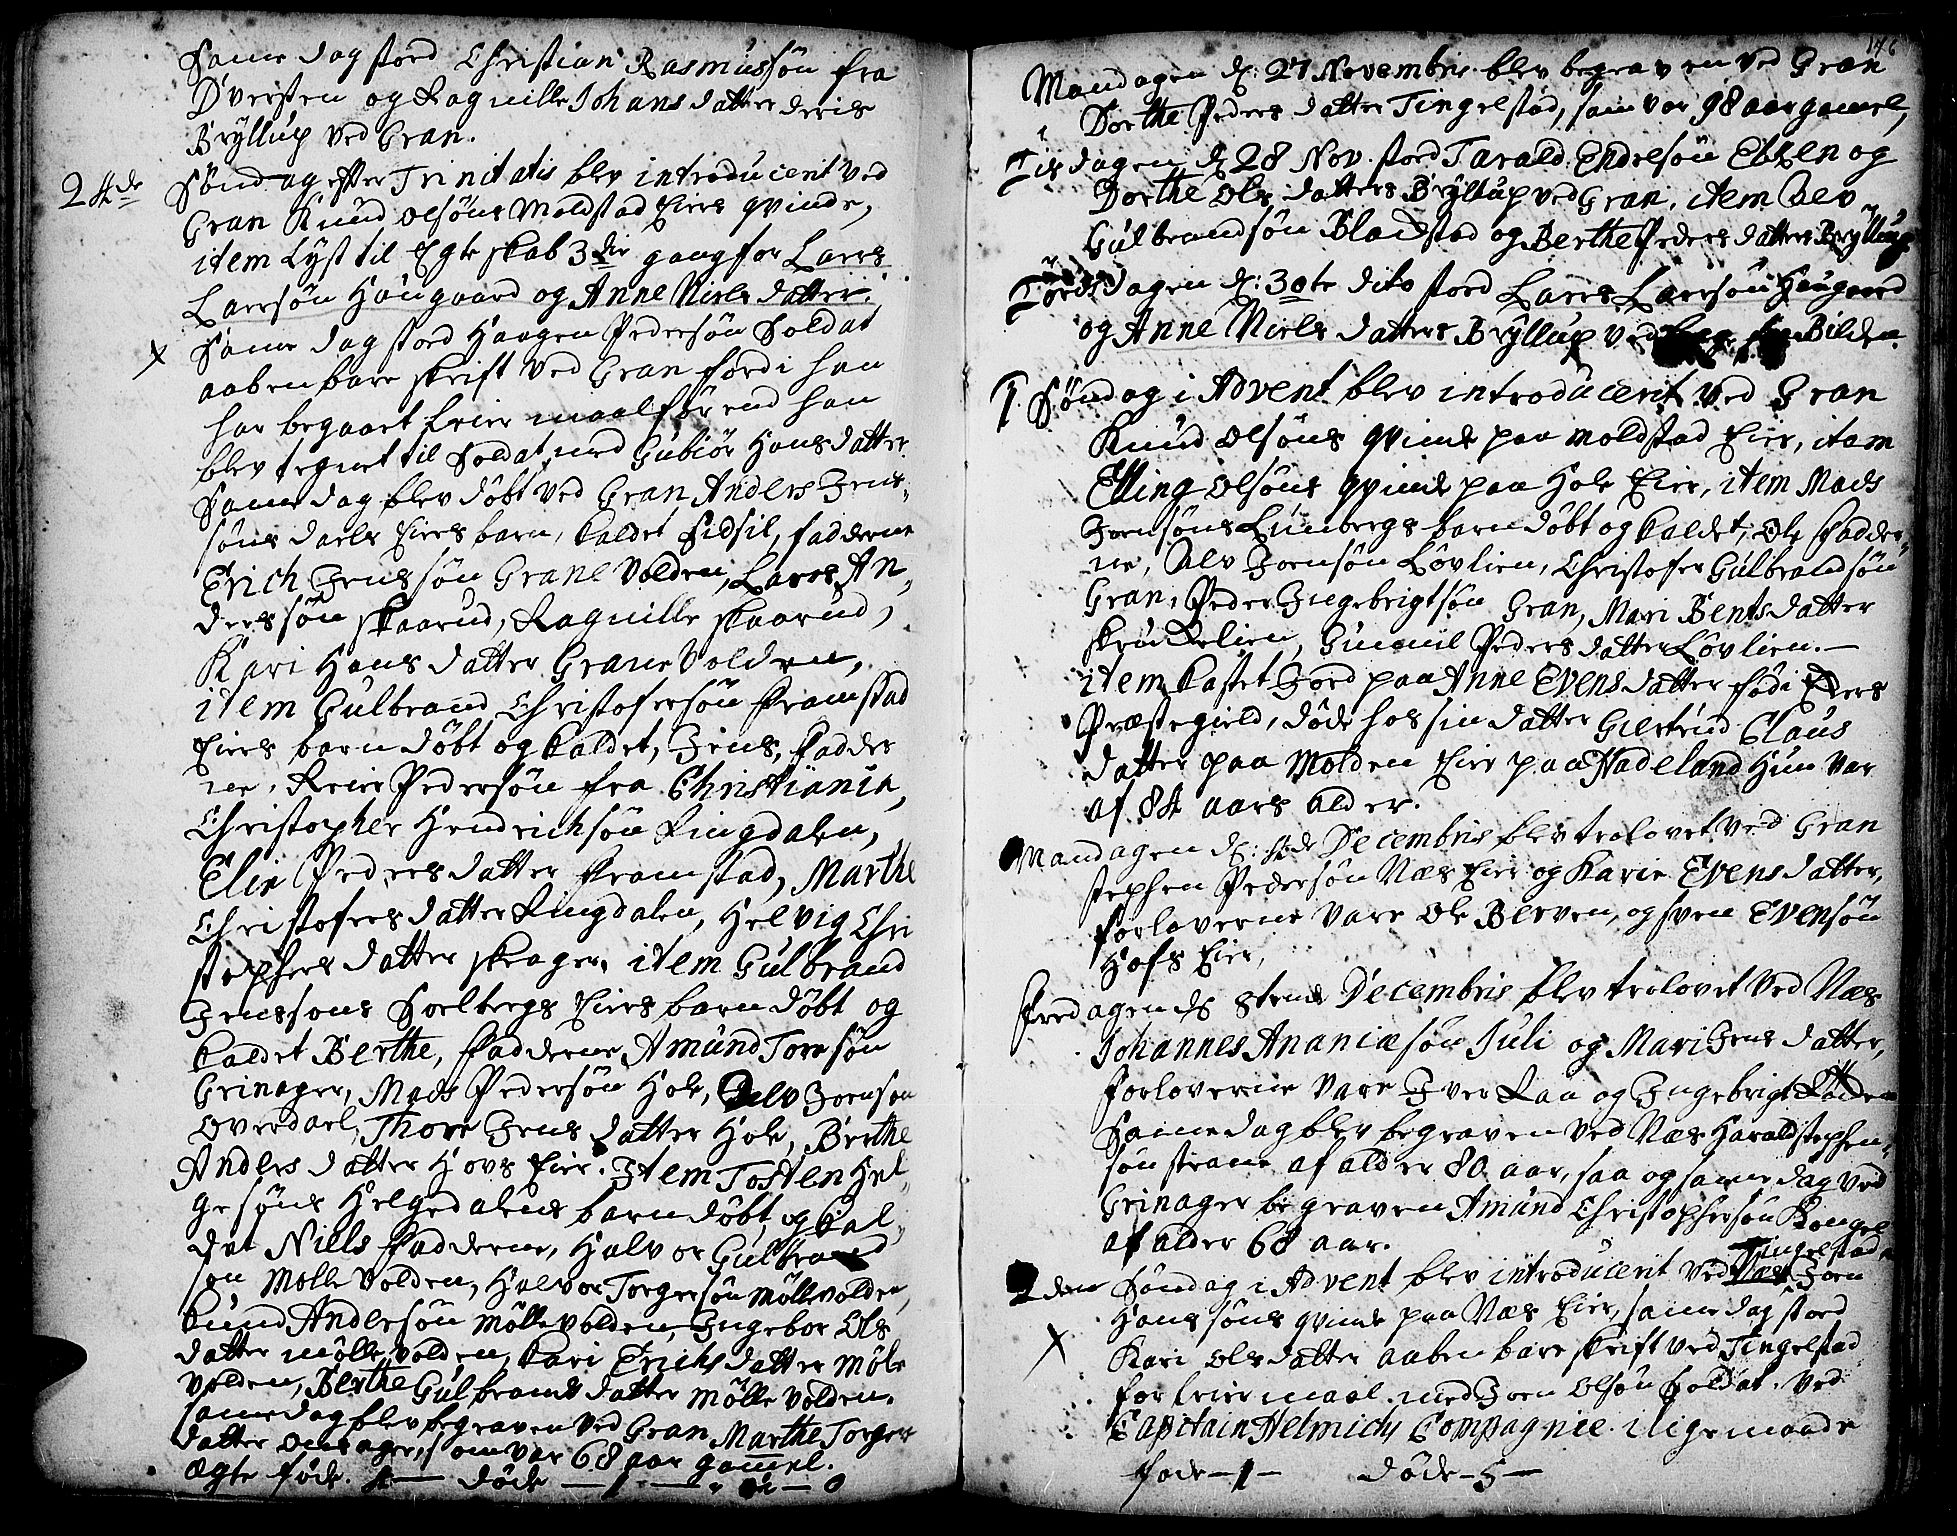 Samme dag stod Christian Rasmussøn fra
Dversten og Ragnille Johans datter deris
Bryllup ved Gran.
24de Søndag efter Trinitatis blev introducerit ved
Gran Knud Olsøns Molstad Eies qvinde,
item Lyst til Egteskab 3die gang for Lars
Larssøn Haugaard og Anne Niels datter.
Same dag stod Haagen Pedersøn Soldat
aabenbare skrift ved Gran fordi han
har begaaet leiermaal før end han
blev tegnet til Soldat med Gubiør Hans datter
Same dag blev døbt ved Gran Anders Jens-
søns daels Eies barn, kaldet Sidsil, fadderne
Erich Jenssøn Grane volden, Lars An-
derssøn skaarud, Ragnille skaarud,
Kari Hans datter Grane Volden,
item Gulbrand Christofersøn Framstad
Eies barn døbt og kaldet, Jens, fadder
ne, Reier Pedersøn fra Christiania,
Christopher Hendrichsøn Ringdalen,
Elin Peders datter Framstad, Marthe
Christofers datter Ringdalen, Helvig Chri
stophers datter skrager, item Gulbrand
Jenssøns Soelbergs Eies barn døbt og
kaldet Berthe, fadderne Amund Toresøn
Grinager, Mads Pedersøn Hole, Alv Joensøn
Overdael, Thore Jens datter Hole, Berthe
Anders datter Hovs Eier. Item Tosten Hel-
gesøns Helgedalens barn døbt og kal-
det Niells fadderne, Halvor Gulbrand
søn Mølle Volden, Halvor Torgersøn Møllevolden,
Knud Andersøn Møllevolden, Ingebor Ols
datter mølle volden, kari Erichs datter Møle
volden, Berthe Gulbrands datter Mølle volden.
same dag blev begraven ved Gran Marthe Torger
datter som var 68 aar gamel.
ægte føde. 4 — døde — 1 —

146
Mandagen d: 27 Novembris blev begraven ved Gran
Dorthe Peders datter Tingelstad, som var 98 aar gamel,
Tisdagen d 28 Nov. stod Tarald Endresøn Eben og
Dorthe Ols datters Bryllup ved Gran, item Alev
Gulbrandsøn Bladstad og Berthe Peders datters Bryllup
Torsdagen d: 30te dito stod Lars Larsøn Haugaard
og Anne Niels datters Bryllup ved Bilden.
1 Søndag i Advent blev introducerit ved Gran
Knud Olsøns qvinde paa Molstad Eier, item
Elling Olsøns qvinde paa Hole Eier, item Mads
Joensøns Lunbergs barn døbt og kaldet, Ole fadder-
ne, Alv Joensøn Løvlien, Christofer Gulbrandsøn
Gran, Peder Ingebrigtsøn Gran, Mari Bents datter
skrukelien, Gunnil Peders datter Løvlien.—
item kastet Jord paa Anne Evens datter fød i
Præstegield, døde hos sin datter Giertrud Claus
datter paa Molden Eie paa Hadeland Hun var
af 84 aars alder.
Mandagen d: 4de Decembris blev trolovet ved Gran
stephen Pedersøn Næs Eier og Karie Evens datter,
forloverne vare Ole Berven, og sven Evensøn
Hofs Eier,
Fredagen d 8tende Decembris blev trolovet ved Næs
Johannes Ananiæsøn Juli og Mari Jens datter,
forloverne vare Iver Raa og Ingebrigt
Same dag blev begraven ved Næs Harald stephen-
søn strane af alder 80 aar, saa og same dag ved
Grinager begraven Amund Christophersøn
af alder 68 aar.
Tingelstad
2den Søndag i Advent blev introducerit ved Joen
Hanssøns qvinde paa Næs Eier, same dag stod
Kari Ols datter aabenbare skrift ved Tingelstad
for leiermaal med Joen Olsøn Soldat ved
Capitain Helmichs Compagnie. iligemaade
føde — 1 — døde — 5 —